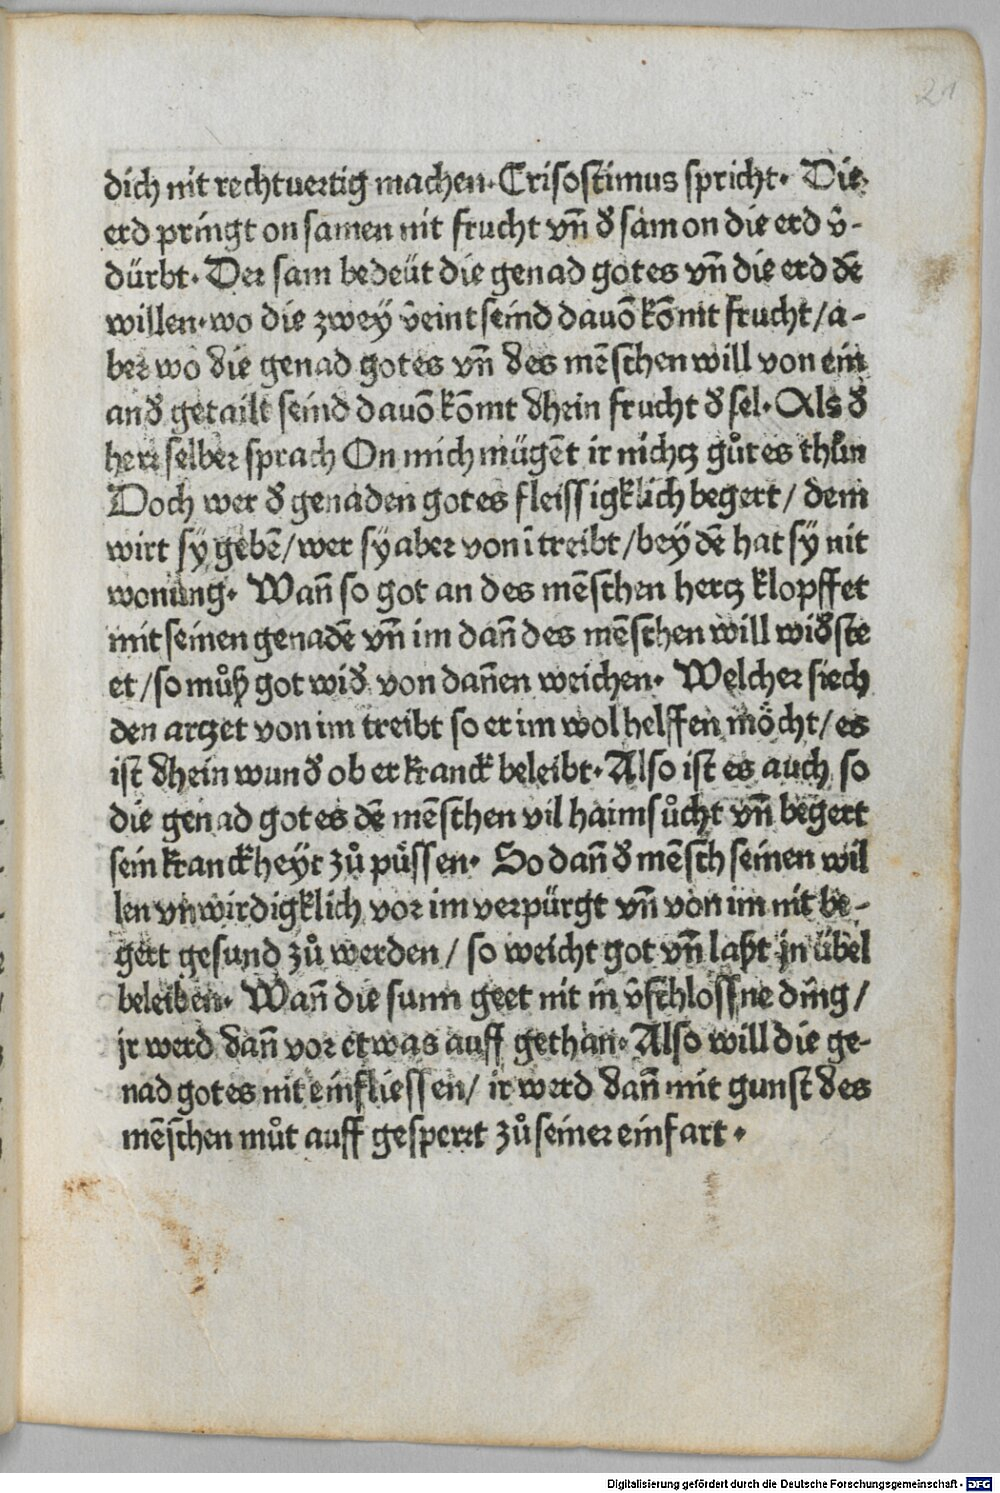 21
dich nit rechtuertig machen. Crisostimus spricht. Die
erd pringt on samen nit frucht vñ đ sam on die erd v̄-
dürbt. Der sam bedeüt die genad gotes vñ die erd dē
willen. wo die zwey v̄eint seind dauō kōmt frucht/ a-
ber wo die genad gotes vñ des mēschen will von ein
anđ getailt seind dauō kōmt dhein frucht đ sel. Als đ
herr selber sprach On mich mügēt ir nichtz gůtes thůn
Doch wer đ genaden gotes fleissigklich begert/ dem
wirt sy gebē/ wer sy aber von ī treibt/ bey dē hat sy nit
wonung. Wañ so got an des mēschen hertz klopffet
mit seinen genadē vñ im dañ des mēschen will wiđste
et/ so můß got wiđ von dañen weichen. Welcher siech
den artzet von im treibt so er im wol helffen möcht/ es
ist dhein wunđ ob er kranck beleibt. Also ist es auch so
die genad gotes dē mēschen vil haimsůcht vñ begert
sein kranckheyt zů püssen. So dañ đ mēsch seinen wil
len vnwirdigklich vor im verpürgt vñ von im nit be-
gert gesund zů werden/ so weicht got vñ laßt jn übel
beleiben. Wañ die sunn geet nit in v̄schlossne ding/
jr werd dañ vor etwas auff gethan. Also will die ge-
nad gotes nit einfliessen/ ir werd dañ mit gunst des
mēschen můt auff gesperrt zů seiner einfart.
Digitalisierung gefördert durch die Deutsche Forschungsgemeinschaft - DFG